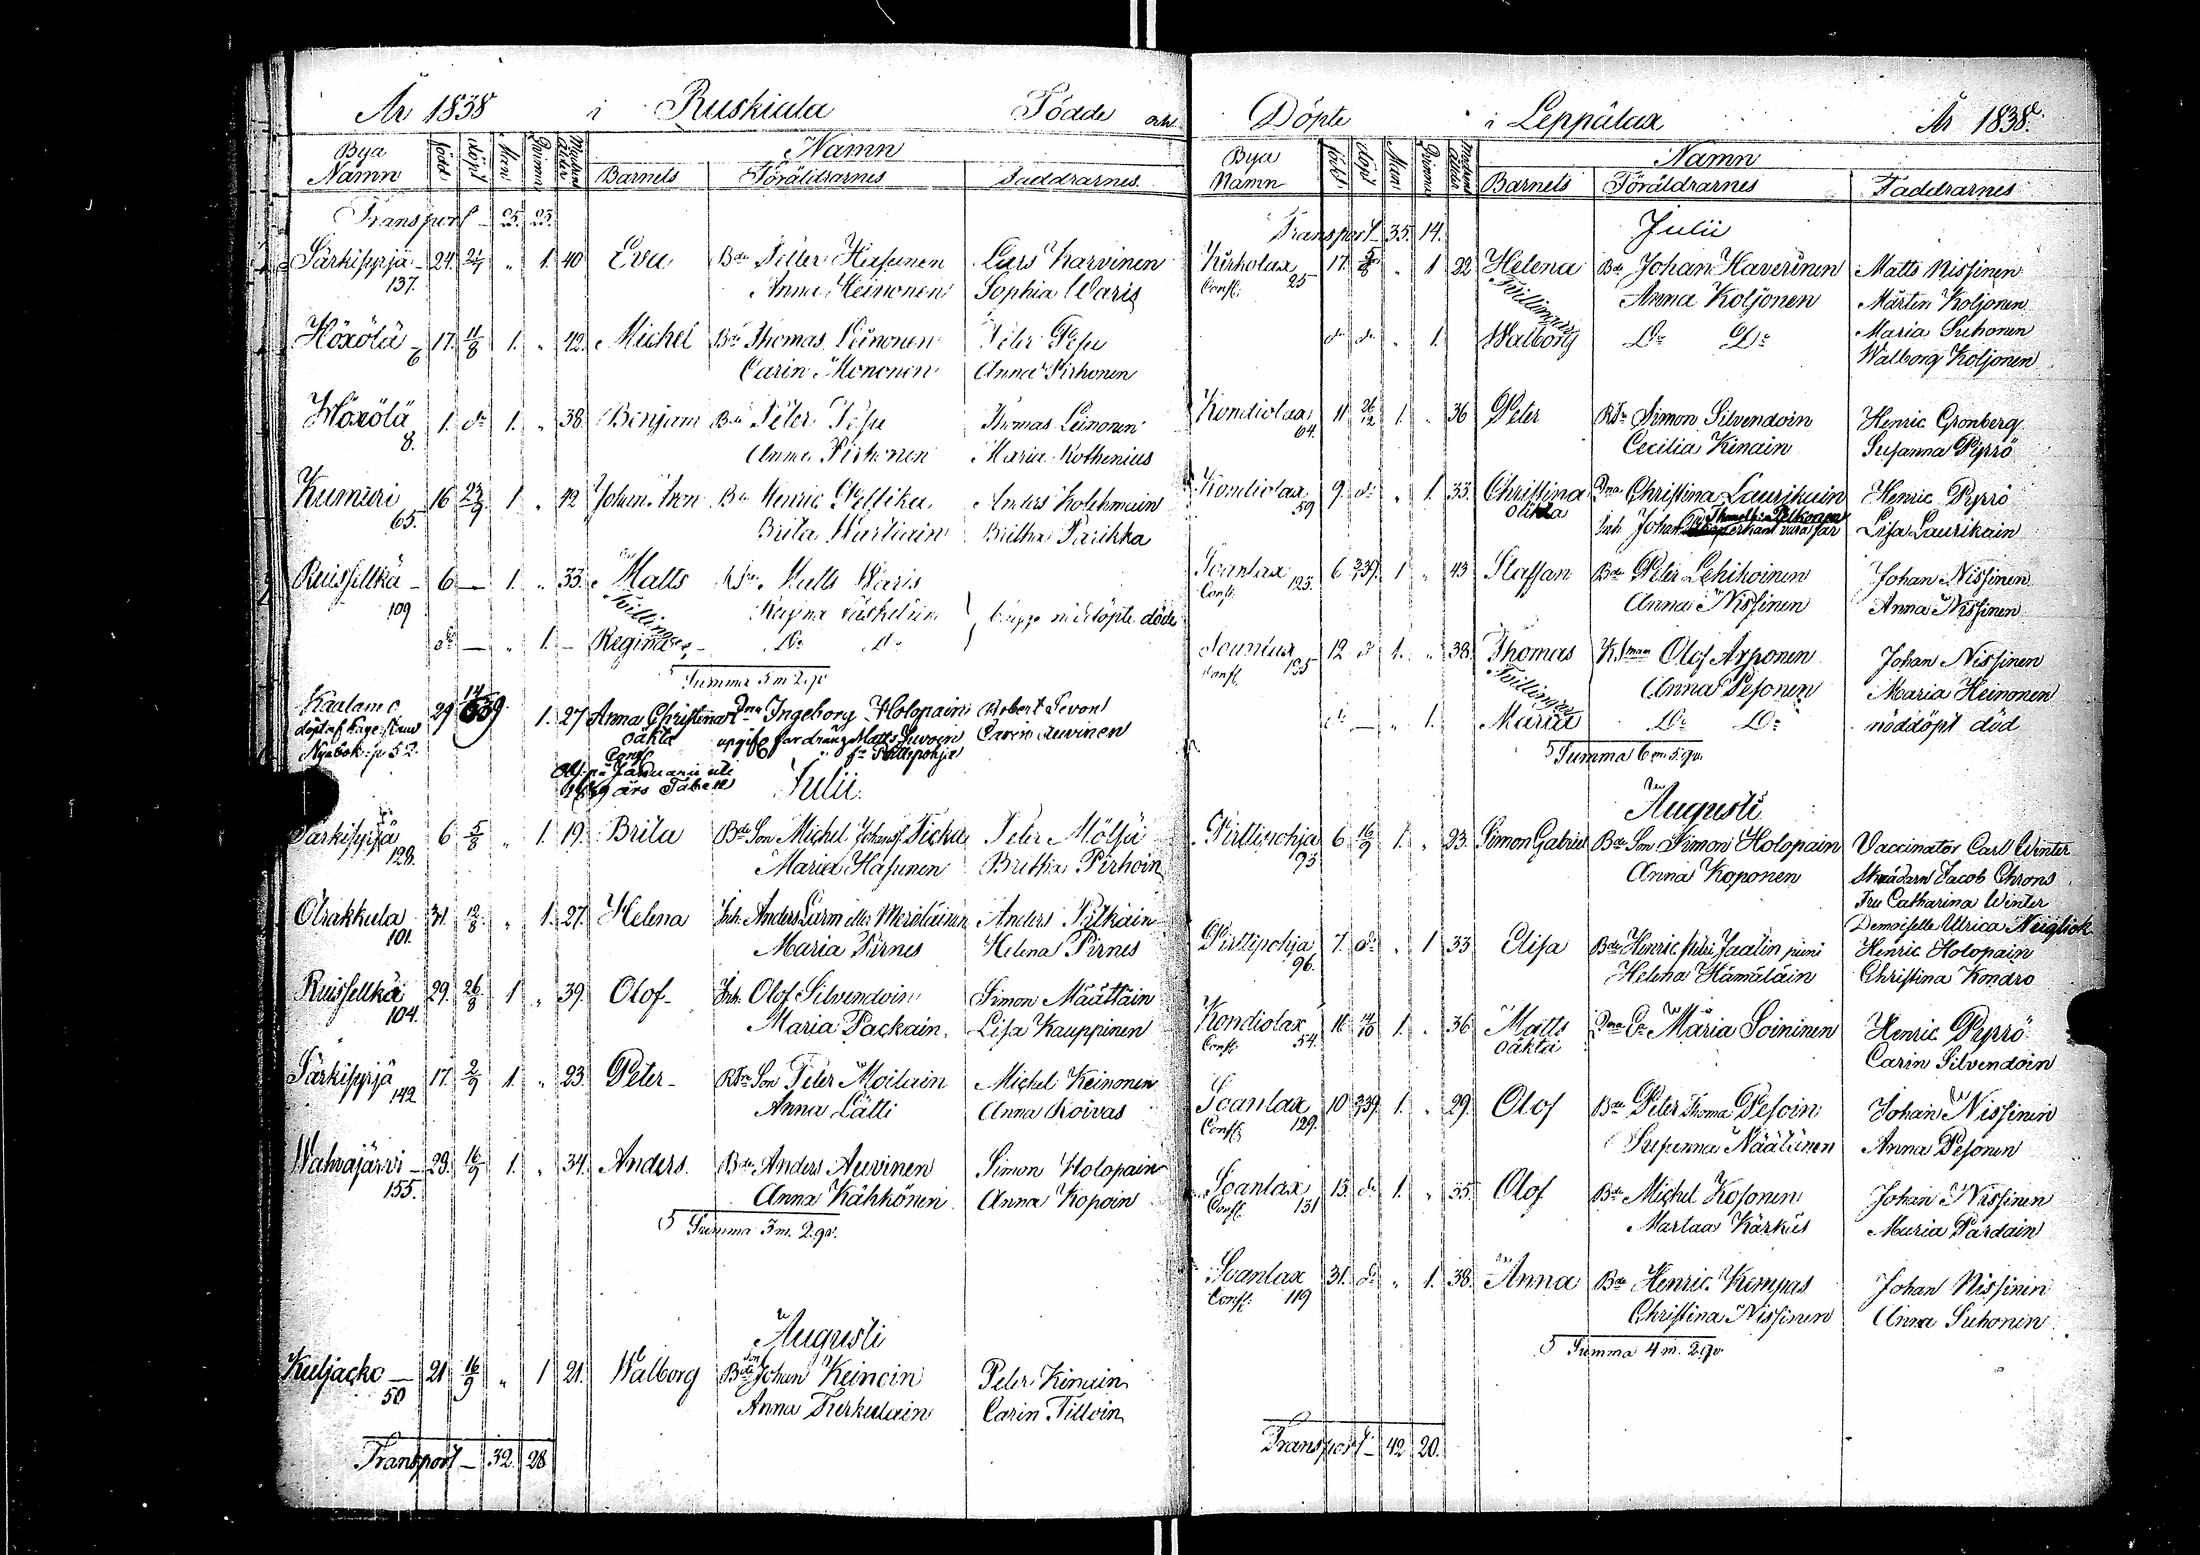 År 1838 i Ruskiala Födde och
Bya Namn född döpt Men Qvinna Modrens ålder Namn
Barnets Föräldrarnes Faddrarnes
Transport 25. 23.
Särkisyrjä 24. 21/7 " 1. 40 Eva Bde Peter Hasunen Lars Karvinen
137. Anna Heinonen Sophia Waris
Höxölä 17. 11/8 1. " 42. Michel Bde Thomas Leinonen Peter Pesu
6 Carin Mononen Anna Pirhonen
Höxölä 1. do 1. " 38. Benjam Bde Peter Pesu Thomas Leinonen
8. Anna Pirhonen Maria Kothenius
Kumuri 16 23/9 1 " 42 Johan Aron Bde Henric Peltika Anders Kolehmain
65. Brita Wartiain Britha Parikka
Ruisselkä 6 — 1. " 33. Matts Matts Waris
109 Tvillingar
do — " 1. — Regina Do Do nöddöpte döde
Summa 5 m 2 qv
Kaalamo 29 14/839 1. 27 Anna Christina Dna Ingeborg Holopain Robert Sevon
oäkta Carin Auvinen
Nyabok: p 52.
Julii.
Särkisyrjä 6 5/8 " 1. 19. Brita Bde Son Michel Johanss. Peter Mölsä
128. Maria Hasunen Britha Pirhoin
Otrakkala 31. 12/8 " 1. 27. Helena Inh. Anders Larm eller Meriläinen Anders Pitkäin
101. Maria Pirnes Helena Pirnes
Ruisselkä 29. 26/8 1 " 39. Olof Inh. Olof Silvendoin Simon Määttäin
104. Maria Packain Lisa Kauppinen
Särkisyrjä 17. 2/9 1. " 23. Peter Son Peter Moilain Michel Keinonen
142 Anna Lätti Anna Koivas
Wahvajärvi 29. 16/9 1. " 34. Anders. Bde Anders Auvinen Simon Holopain
155. Anna Kähkönen Anna Kopoin
Summa 3 m. 2. qv.
Augusti
Kuljacko 21 16/9 " 1 21. Walborg Bde Son Johan Keinoin Peter Kinain
50 Anna Turkulain Carin Tilloin
Transport 32. 28
Döpte i Leppälax År 1838.
Bya Namn född döpt Men Qvinna Modrens ålder Namn
Barnets Föräldrarnes Faddrarnes
Transport 35. 14.
Julii
Kirkolax 17. 5/8 " 1 22 Helena Bde Johan Haverinen Matts Nissinen
Confl. 25 Tvillingar Anna Koljonen Mårten Koljonen
do do " 1. Walborg Do Do Maria Suhonen
Walborg Koljonen
Kondiolax 11 26/12 1. " 36 Peter Simon Silvendoin Henric Gronberg
64. Cecilia Kinain Susanna Pyrrö
Kondiolax 9. do " 1. 33. Christina Dna Christina Laurikain Henric Pyrrö
59 oäkta Inh. Johan Thomassson Pelkonen erkänt vara far Lisa Laurikain
Soanlax 6 1 " 43 Staffan Bde Peter Lehikoinen Johan Nissinen
Confl. 125. Anna Nissinen Anna Nissinen
Soanlax 12 d 1. " 38. Thomas Olof Arponen Johan Nissinen
Confl. 135 Tvillingar Anna Pesonen Maria Heinonen
do — " 1. Maria Do Do nöddöpt död
Summa 6 m. 5. qv.
Augusti
Pirttipohja 6 16/9 1. " 23. Simon Gabriel Bde Son Simon Holopain Vaccinator Carl Winter
95 Anna Koponen Skrädarn Jacob Chrons
Fru Catharina Winter
Demoiselle Ulrica Neiglick
Pirttipohja 7. do " 1 33 Elisa Bde Henric Henric Holopain
96. Helena Hämäläin Christina Kondro
Kondiolax 16 14/10 1. " 36 Matts Maria Soininen Henric Pyrrö
Confl. 54. oäkta Carin Silvendoin
Soanlax 10 1. " 29. Olof Bde Peter Thoma Pesoin Johan Nissinen
Confl. 129. Susanna Näätänen Anna Pesonen
Soanlax 15. do 1. " 35. Olof Bde Michel Kosonen Johan Nissinen
Confl. 131 Martaa Kärkäs Maria Pardain
Soanlax 31. do " 1. 38. Anna Bde Henric Kempas Johan Nissinen
Confl: 119 Christina Nissinen Anna Suhonen
Summa 4 m. 2 qv
Transport 42 20.